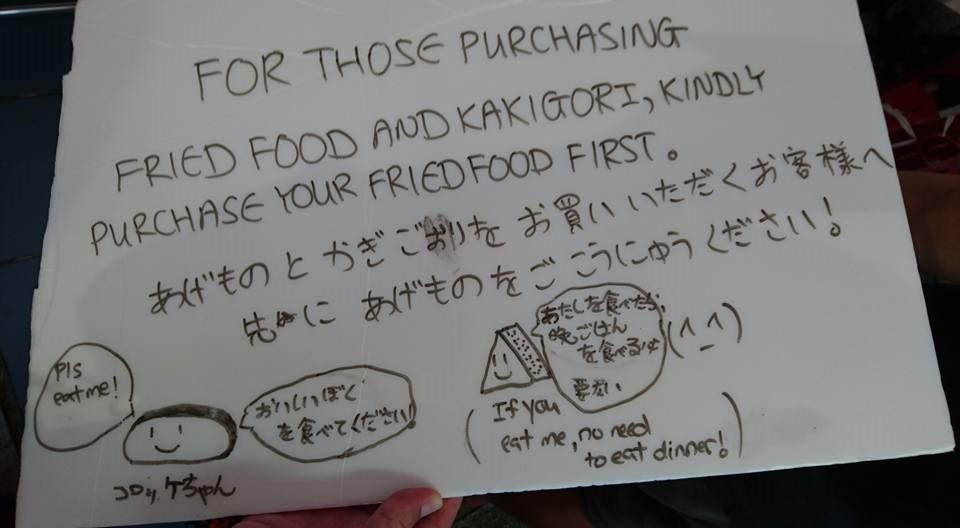 FOR THOSE PURCHASING
FRIED FOOD AND KAKIGORI, KINDLY
PURCHASE YOUR FRIED FOOD FIRST。
あげものと かぎごおりを お買いいただくお客様へ
先に あげものをご こうにゅうください！
Pls
eat me!
おいしいぼく
を食べてください!
コロッケちゃん
あたしを食べたら、
晩ごはん
を食べる
要ない
(^_^)
(If you
eat me, no need
to eat dinner!)